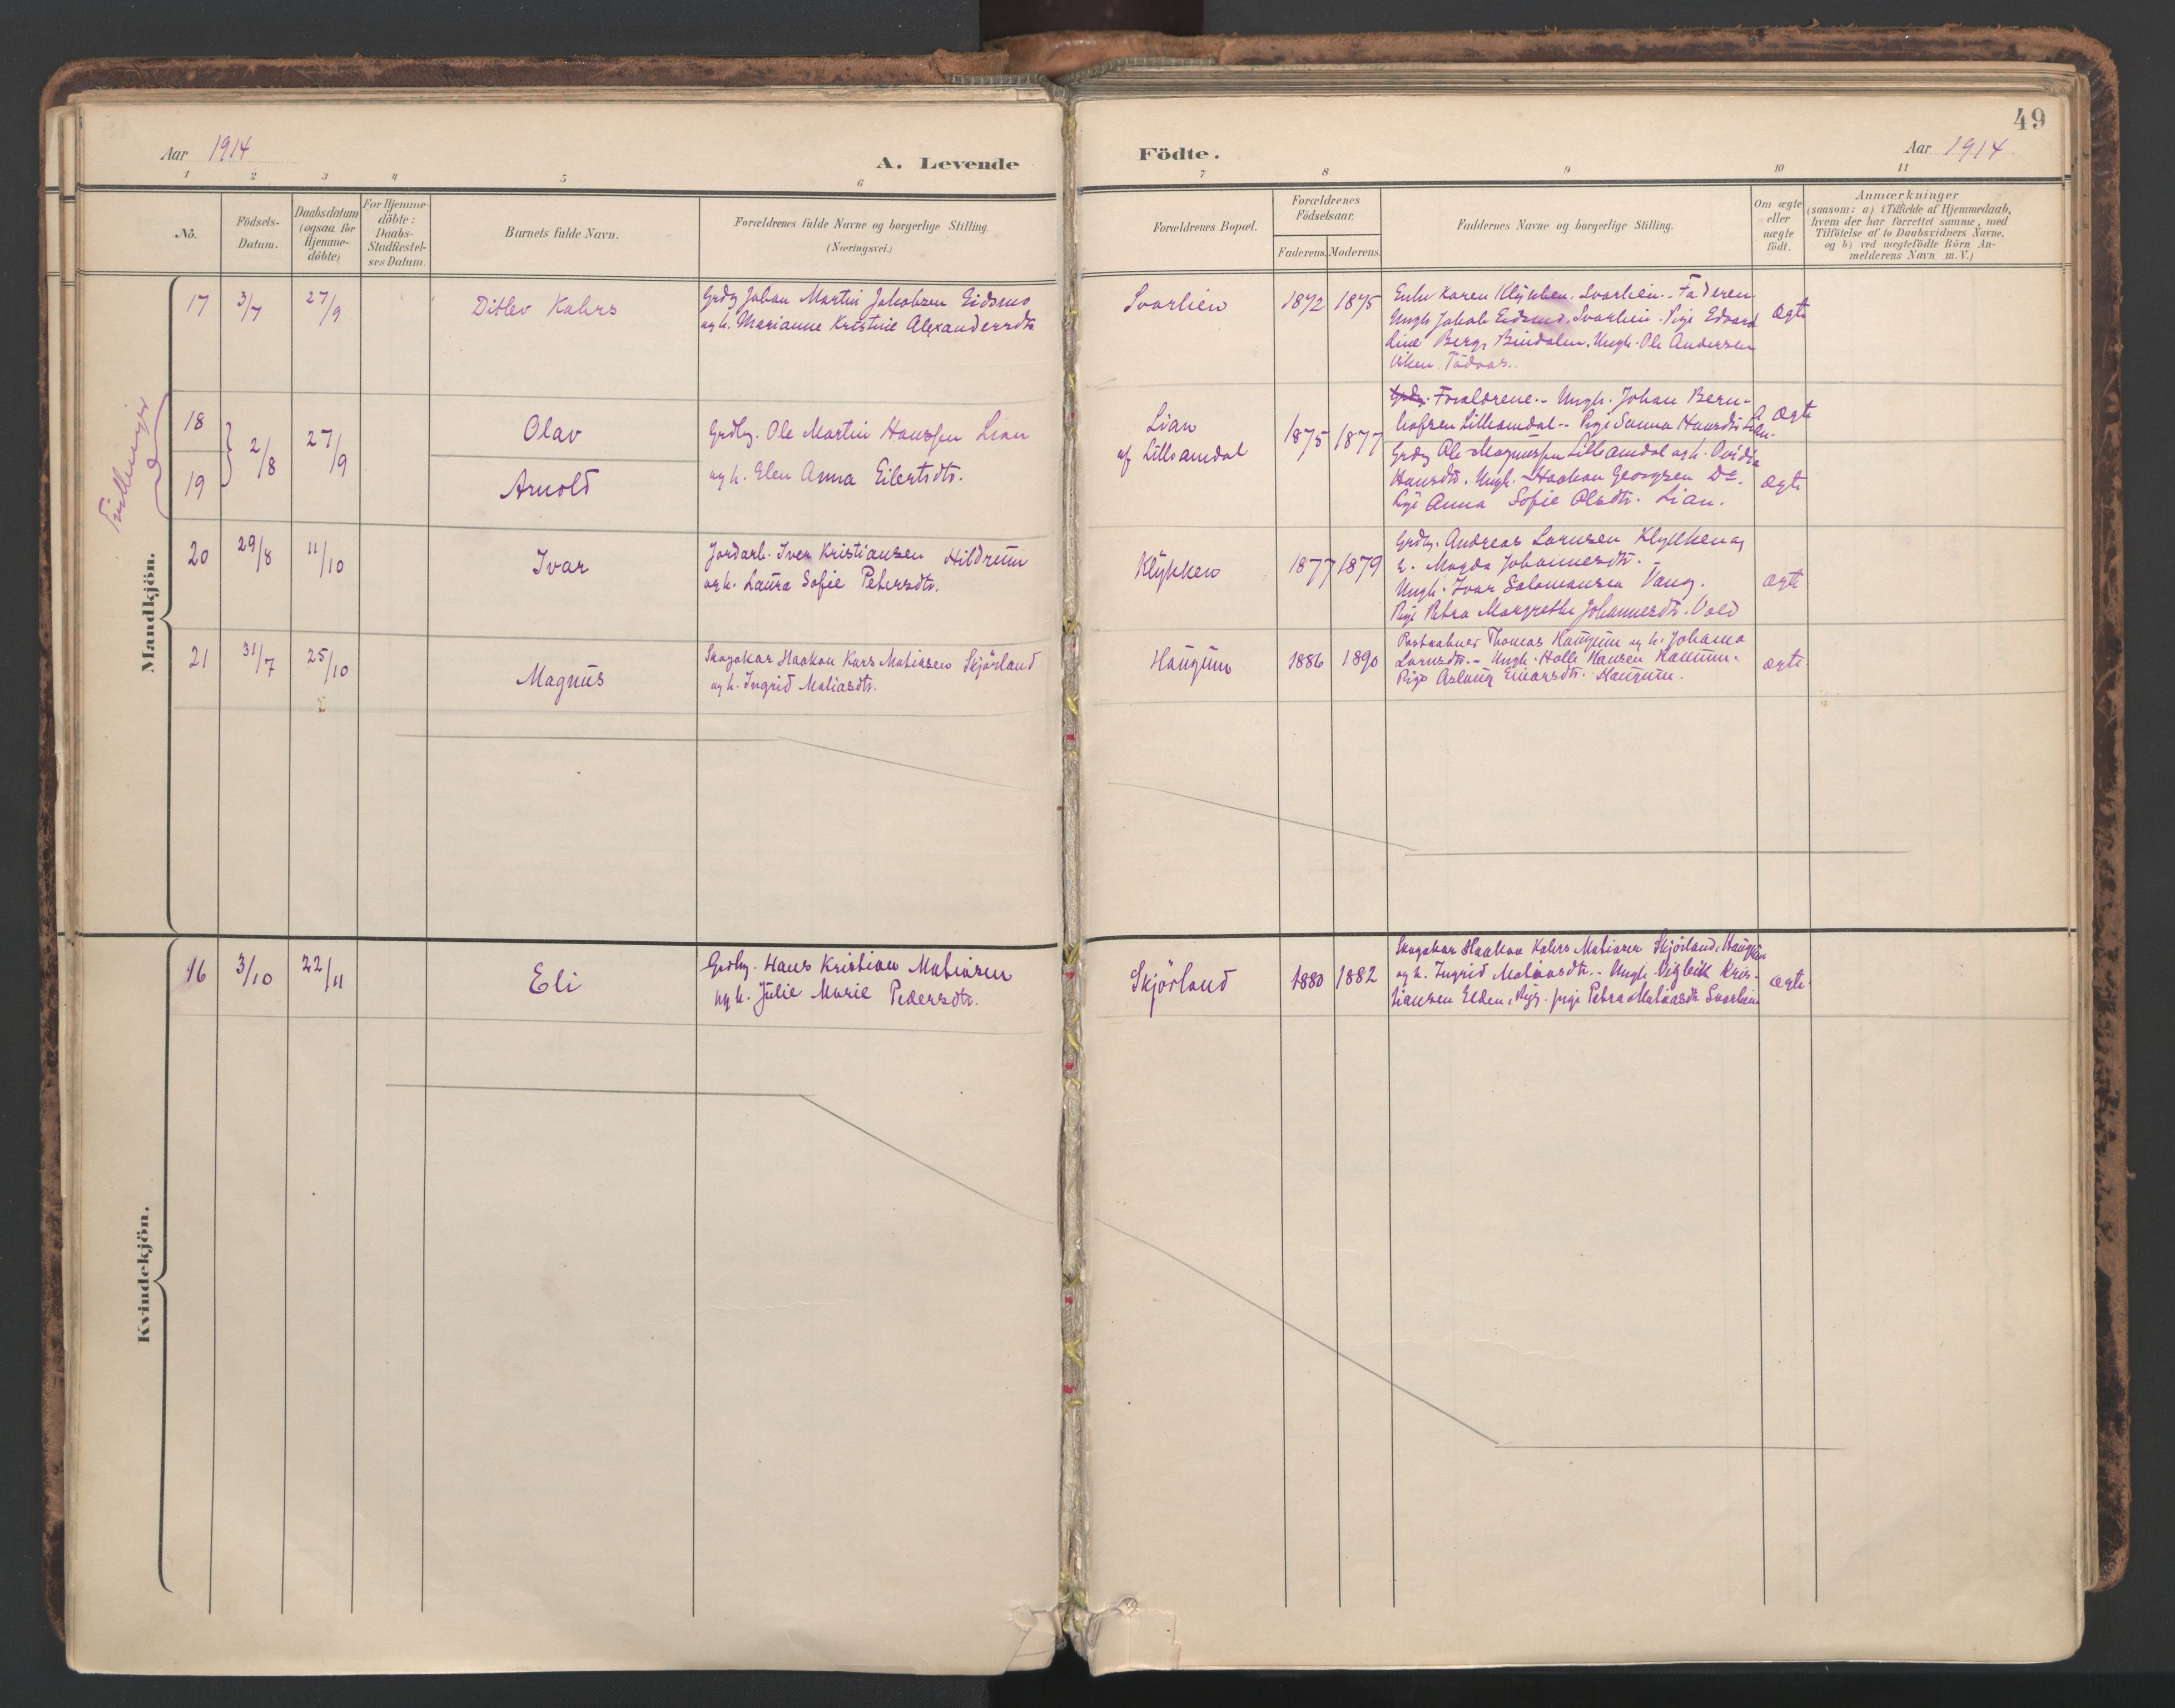 49
Aar 1914
A. Levende
Födte.
Aar 1914
1 2 3 4 5 6 7 8 9 10 11
No.
Födsels-
Datum.
Daabsdatum
(ogsaa for
Hjemme-
döbte)
For Hjemme-
döbte:
Daabs-
Stadfæstel-
ses Datum.
Barnets fulde Navn.
Forældrenes fulde Navne og borgerlige Stilling.
(Næringsvei.)
Forældrenes Bopæl.
Forældrenes
Födselsaar.
Faderens. Moderens.
Faddernes Navne og borgerlige Stilling.
Om ægte
eller
uægte
födt.
Anmærkninger
(saasom: a) i Tilfælde af Hjemmedaab,
hvem der har forrettet samme, med
Tilföielse af to Daabsvidners Navne,
og b) ved uægtefödte Börn An-
melderens Navn m. V.)
Mandkjön.
17 3/7 27/9
Ditlev Kahrs
Grdbr Johan Martin Jakobsen Eidsmo
og h. Marianne Kristine Alexandersdtr
Svarlien
1872 1875
Enke Karen Klykken. Svarlien. Faderen
Ungk Jakob Eidsmo. Svarlien. Pige Edvard
line Berg, Bindalen. Ungk. Ole Andersen
Viken
ægte
Tvillinger
18
19
2/8 27/9
Olav
Arnold
Grdbr. Ole Martin Hanssen Lian
og h. Elen Anna Eilertsdtr.
Lian
af Lilleamdal
1875 1877
Forældrene. Ungk. Johan Bern-
hofsen Lilleamdal. Pige Sanna Hansdtr Lian.
ægte
Grdbr Ole Magnussen Lilleamdal og h. Ovidia
Hansdtr. Ungk. Haakon Georgsen Do.
Pige Anna Sofie Olsdtr. Lian.
ægte
20 29/8 11/10
Ivar
Jordarb. Iver Kristiansen Hildrum
og h. Laura Sofie Petersdtr.
Klykken
1877 1879
Grdbr. Andreas Lornsen Klykken og
h. Magda Johannesdtr.
Ungk. Ivar Salomonsen Vang.
Pige Petra Margrethe Johannesdtr. Vold
ægte
21 31/7 25/10
Magnus
Skogskar Haakon Kars Matiasen Skjörland
og h. Ingrid Matiasdtr.
Haugum
1886 1890
Postaabner Thomas Haugum og h. Johanna
Lornsdtr. Ungk. Halle Hansen Haugum.
Pige Aslaug Einarsdtr. Haugum.
ægte
Kvindekjön.
16 3/10 22/11
Eli
Grdbr. Hans Kristian Matiasen
og h. Julie Marie Pedersdtr.
Skjörland
1880 1882
Skogskar Haakon Kahrs Matiasen Skjörland, Haugum
og h. Ingrid Matiasdtr. Ungk. Vigleik Kris-
tiansen Elden, pige Petra Matiasdtr Svarlien
ægte